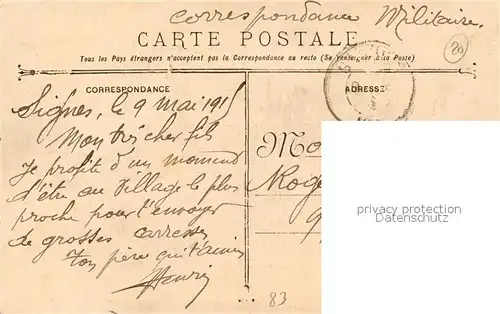 correspondance Militaire.
CARTE POSTALE
Tous les Pays étrangers n'acceptent pas la Correspondance au recto (Se renseigner à la Poste)
20
CORRESPONDANCE
ADRESSE
Signes, le 9 mai 1915
Mon très cher fils
Je profite d'un moment
d'être au village le plus
proche pour t'envoyer
de grosses caresses
ton père qui t'aime
Henri
Mo
Roge
9
privacy protection
datenschutz
83